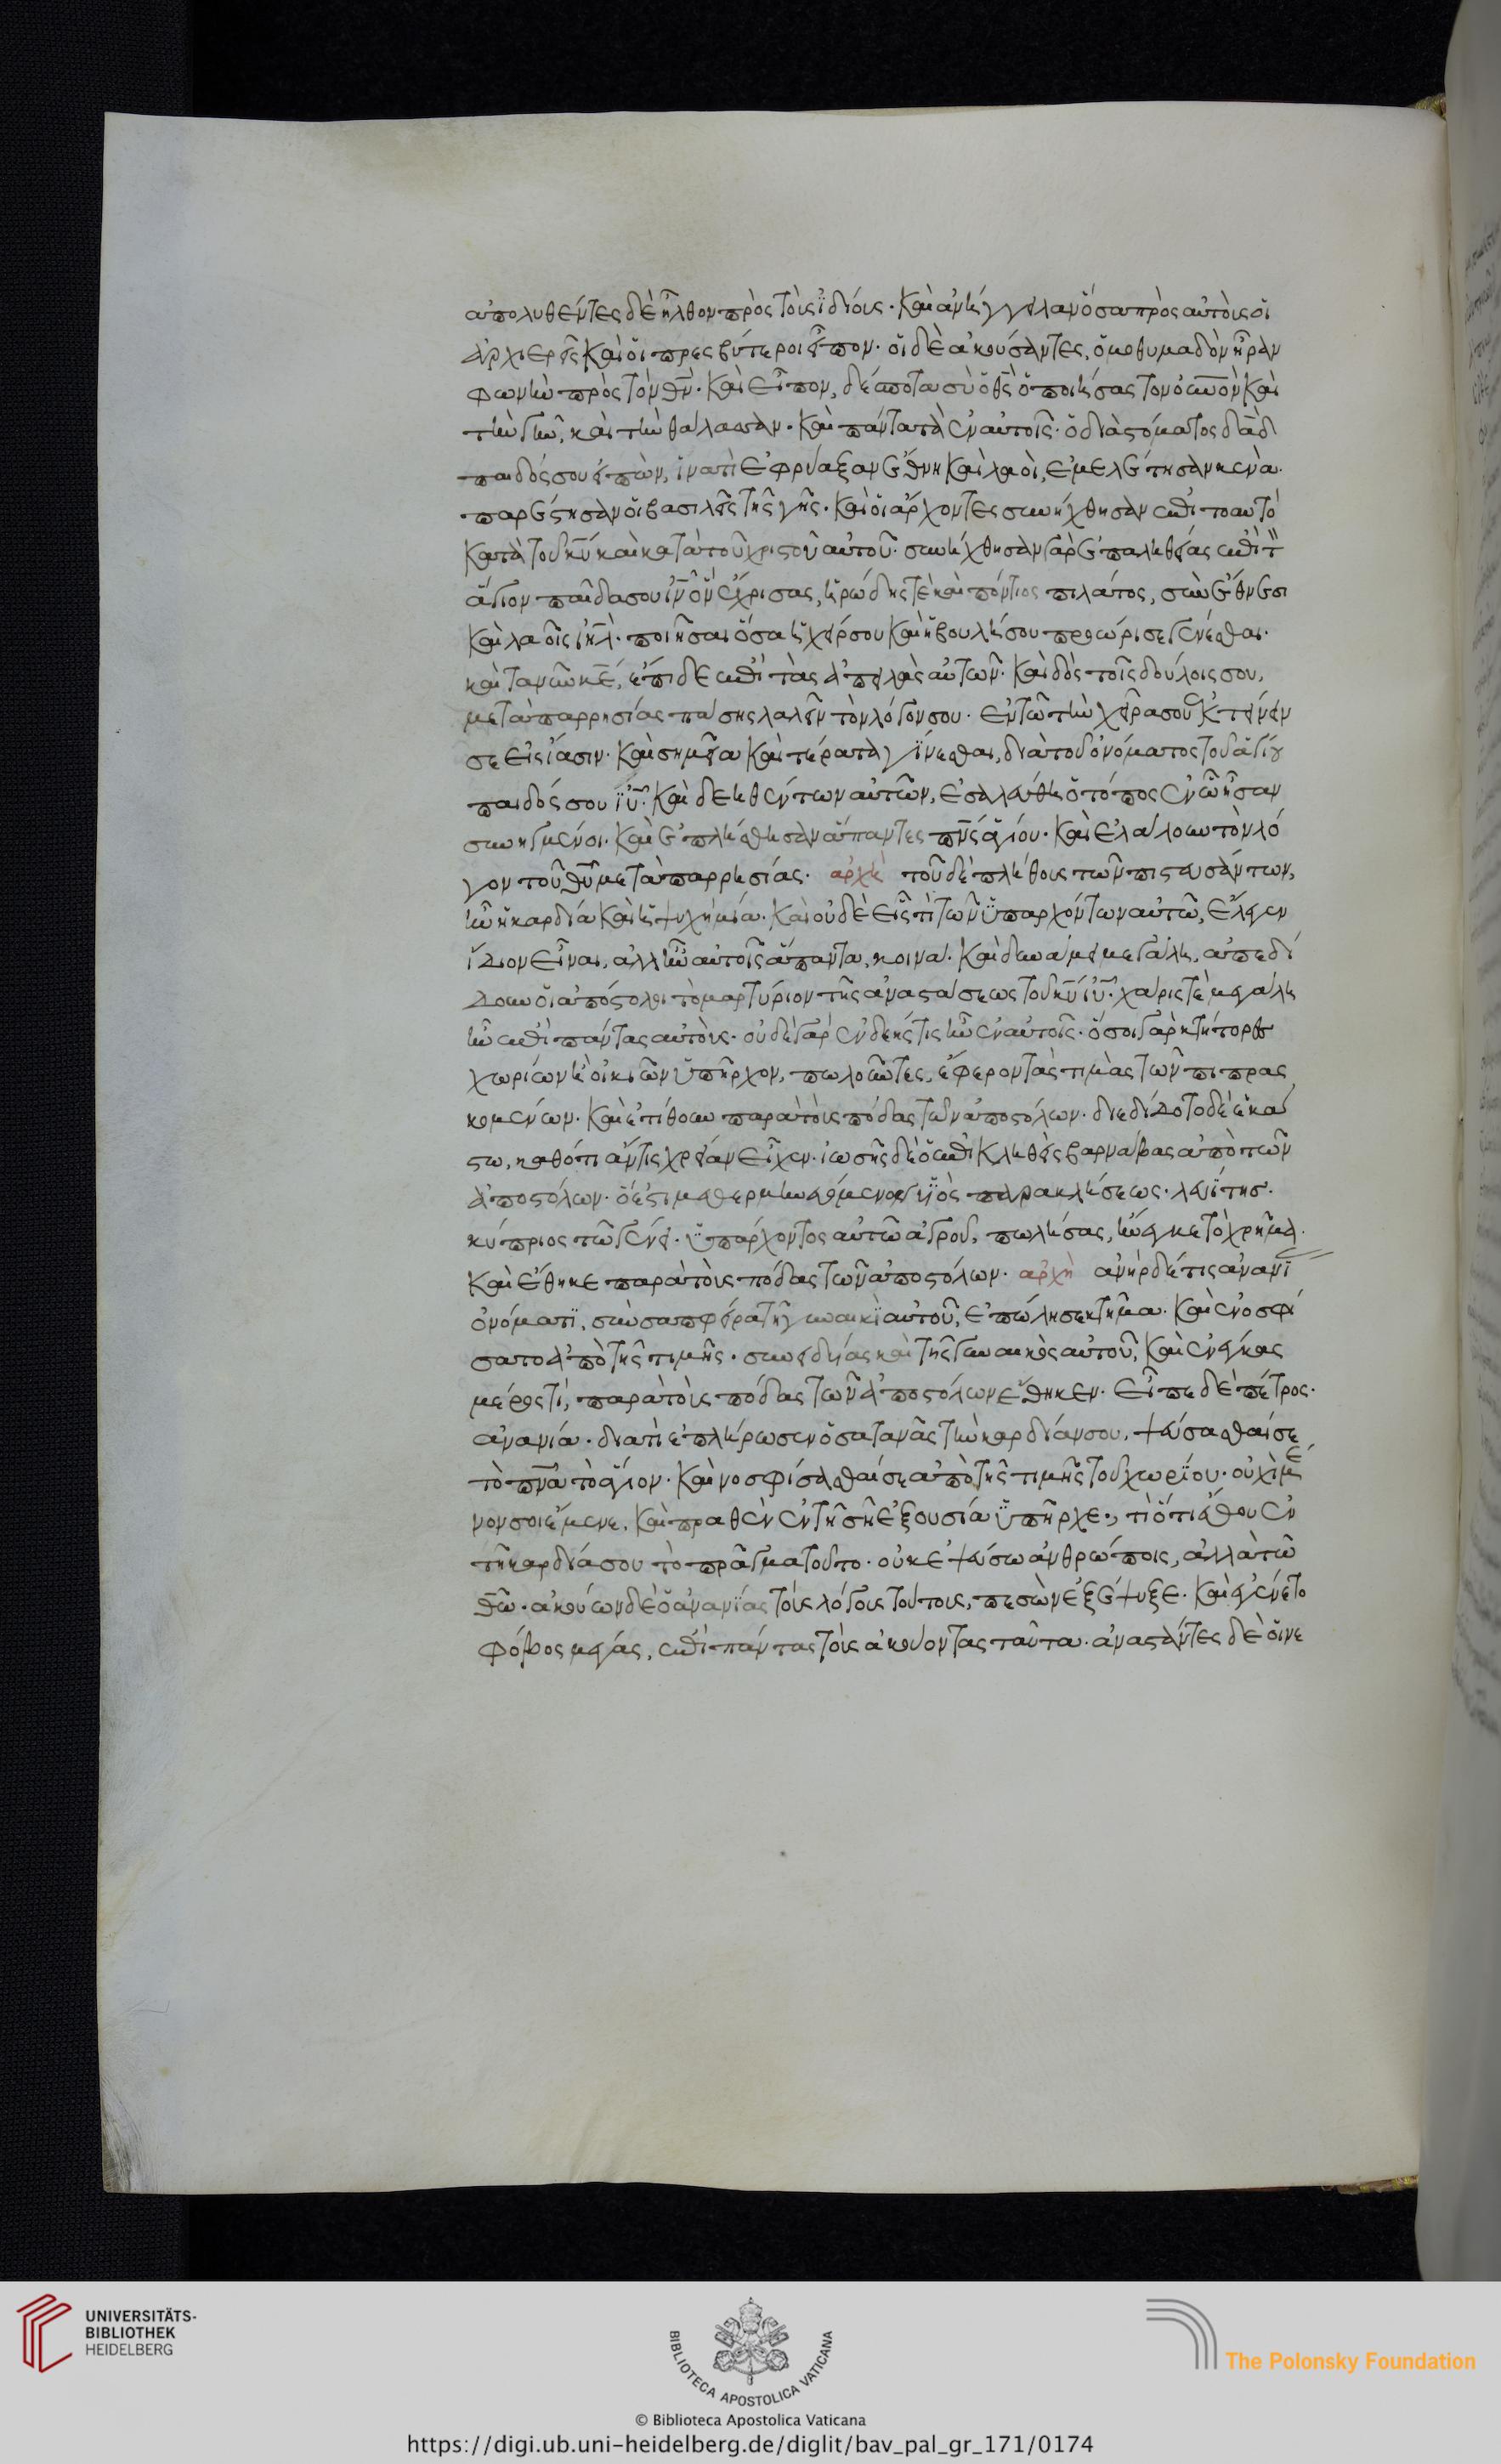 ἀπολυθέντες δὲ ἦλθον πρὸς τοὺς ἰδίους· καὶ ἀνήγγειλαν ὅσα πρὸς αὐτοὺς οἱ
ἀρχιερεῖς καὶ οἱ πρεσβύτεροι εἶπον· οἱ δὲ ἀκούσαντες, ὁμοθυμαδὸν ἦραν
φωνὴν πρὸς τὸν θν· καὶ εἶπον, δέσποτα σὺ ὁ θς ὁ ποιήσας τὸν οὐνον καὶ
τὴν γῆν, καὶ τὴν θάλασσαν· καὶ πάντα τὰ ἐν αὐτοῖς· ὁ διὰ στόματος δαδ
παιδός σου εἰπών, ἱνατί ἐφρύαξαν ἔθνη καὶ λαοί, ἐμελέτησαν κενά·
παρέστησαν οἱ βασιλεῖς τῆς γῆς· καὶ οἱ ἄρχοντες συνήχθησαν ἐπὶ τὸ αυτὸ
κατὰ τοῦ κυ καὶ κατὰ τοῦ χριστοῦ αὐτοῦ· συνήχθησαν γὰρ ἐπ' ἀληθείας ἐπὶ τ
ἅγιον παῖδα σου ιν ὃν ἔχρισας, ἡρώδης τὲ καὶ πόντιος πιλάτος, σὺν ἔθνεσι
καὶ λαοῖς ιηλ· ποιῆσαι ὅσα ἡ χείρ σου καὶ ἡ βουλή σου προώρισε γενέσθαι·
καὶ τανῦν κε, ἔπιδε ἐπὶ τὰς ἀπειλὰς αὐτῶν· καὶ δὸς τοῖς δούλοις σου,
μετὰ παρρησίας πάσης λαλεῖν τὸν λόγον σου· ἐν τῶ τὴν χεῖρα σου ἐκτείνειν
σε εἰς ἴασιν· καὶ σημεῖα καὶ τέρατα γίνεσθαι, διὰ τοῦ ὀνόματος τοῦ ἁγίου
παιδός σου ιυ· καὶ δεηθέντων αὐτῶν, ἐσαλεύθη ὁ τόπος ἐν ὧ ἦσαν
συνηγμένοι· καὶ ἐπλήσθησαν ἅπαντες πνς ἁγίου· καὶ ἐλάλουν τὸν λό
γον τοῦ θυ μετὰ παρρησίας· ἀρχὴ τοῦ δὲ πλήθους τῶν πιστευσάντων,
ἦν ἡ καρδία καὶ ἡ ψυχὴ μία· καὶ οὐδὲ εἷς τὶ τῶν ὑπαρχόντων αὐτῶ, ἔλεγεν
ἴδιον εἶναι, ἀλλ' ἦν αὐτοῖς ἅπαντα, κοινά· καὶ δυνάμει μεγάλη, ἀπεδί
δουν οἱ ἀπόστολοι τὸ μαρτύριον τῆς ἀναστάσεως τοῦ κυ ιυ· χάρις τὲ μεγάλη
ἦν ἐπὶ πάντας αὐτούς· οὐδὲ γὰρ ἐνδεής τις ἦν ἐν αὐτοῖς· ὅσοι γὰρ κτήτορες
χωρίων ἢ οἰκιῶν ὑπῆρχον, πωλοῦντες, ἔφερον τὰς τιμὰς τῶν πιπρας
κομένων· καὶ ἐτίθουν παρὰ τοὺς πόδας τῶν ἀποστόλων· διεδίδοτο δὲ ἑκά
στω, καθότι ἄν τις χρείαν εἶχεν· ἰωσῆς δὲ ὁ ἐπικληθεὶς βαρνάβας ἀπὸ τῶν
ἀποστόλων· ὅ ἐστι μεθερμηνευόμενον υἱὸς παρακλήσεως· λευΐτης·
κύπριος τῶ γένει· ὑπάρχοντος αὐτῶ ἀγροῦ, πωλήσας, ἤνεγκε τὸ χρῆμα·
καὶ ἔθηκε παρὰ τοὺς πόδας τῶν ἀποστόλων· ἀρχὴ ἀνὴρ δέ τις ἀνανί
ὀνόματι, σὺν σαπφείρα τῆ γυναικὶ αὐτοῦ, ἐπώλησε κτῆμα· καὶ ἐνοσφί
σατο ἀπὸ τῆς τιμῆς· συνειδυίας καὶ τῆς γυναικὸς αὐτοῦ, καὶ ἐνέγκας
μέρος τί, παρὰ τοὺς πόδας τῶν ἀποστόλων ἔθηκεν· εἶπε δὲ πέτρος·
ἀνανία· διατί ἐπλήρωσεν ὁ σατανᾶς τὴν καρδίαν σου, ψεύσασθαί σε
τὸ πνα τὸ ἅγιον· καὶ νοσφίσασθαί σε ἀπὸ τῆς τιμῆς τοῦ χωρίου· οὐχὶ μέ
νον σοι ἔμενε, καὶ πραθὲν ἐν τῆ σῆ ἐξουσία ὑπῆρχε·, τί ὅτι ἔθου ἐν
τῆ καρδία σου τὸ πρᾶγμα τοῦτο· οὐκ ἐψεύσω ἀνθρώποις, ἀλλὰ τῶ
θω· ἀκούων δὲ ὁ ἀνανίας τοὺς λόγους τούτους, πεσὼν ἐξέψυξε· καὶ ἐγένετο
φόβος μέγας, ἐπὶ πάντας τοὺς ἀκούοντας ταῦτα· ἀναστάντες δὲ οἱ νε
UNIVERSITÄTS-
BIBLIOTHEK
HEIDELBERG
BIBLIOTECA APOSTOLICA VATICANA
The Polonsky Foundation
© Biblioteca Apostolica Vaticana
https://digi.ub.uni-heidelberg.de/diglit/bav_pal_gr_171/0174